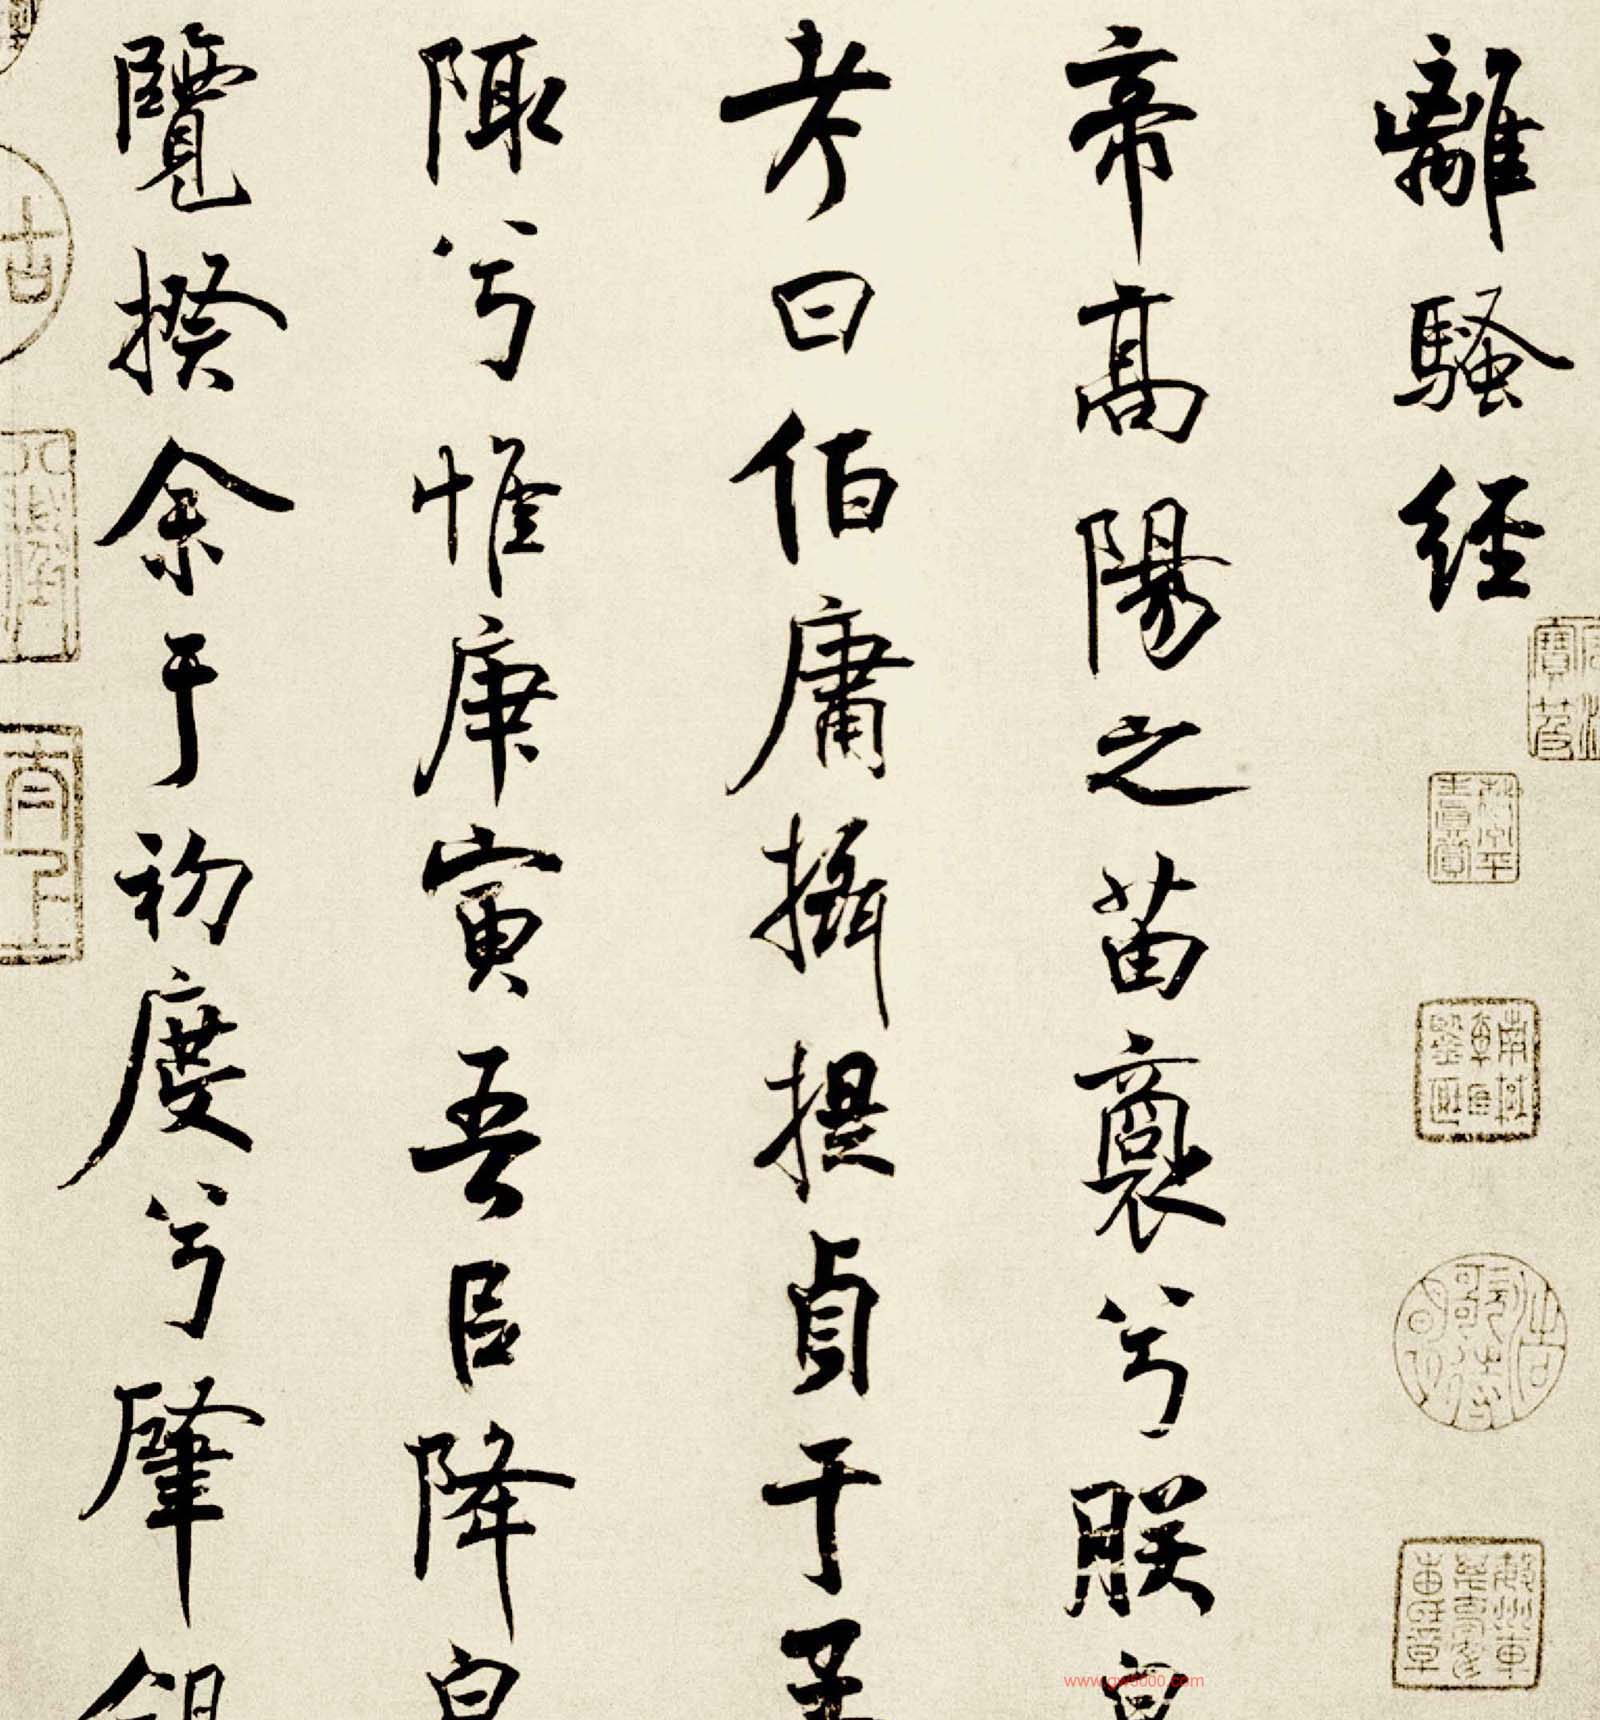 離騷經
帝高陽之苗裔兮朕皇
考曰伯庸攝提貞于孟
陬兮惟庚寅吾以降皇
覽揆余于初度兮肇錫
www.gw5000.com